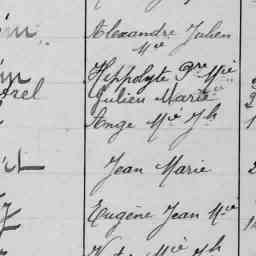 Alexandre Julien
Mie
Hippolyte Pre Mie
rel Julien Marie
Ange Mie Jh
Jean Marie
Eugène Jean Mie
Mie Jh